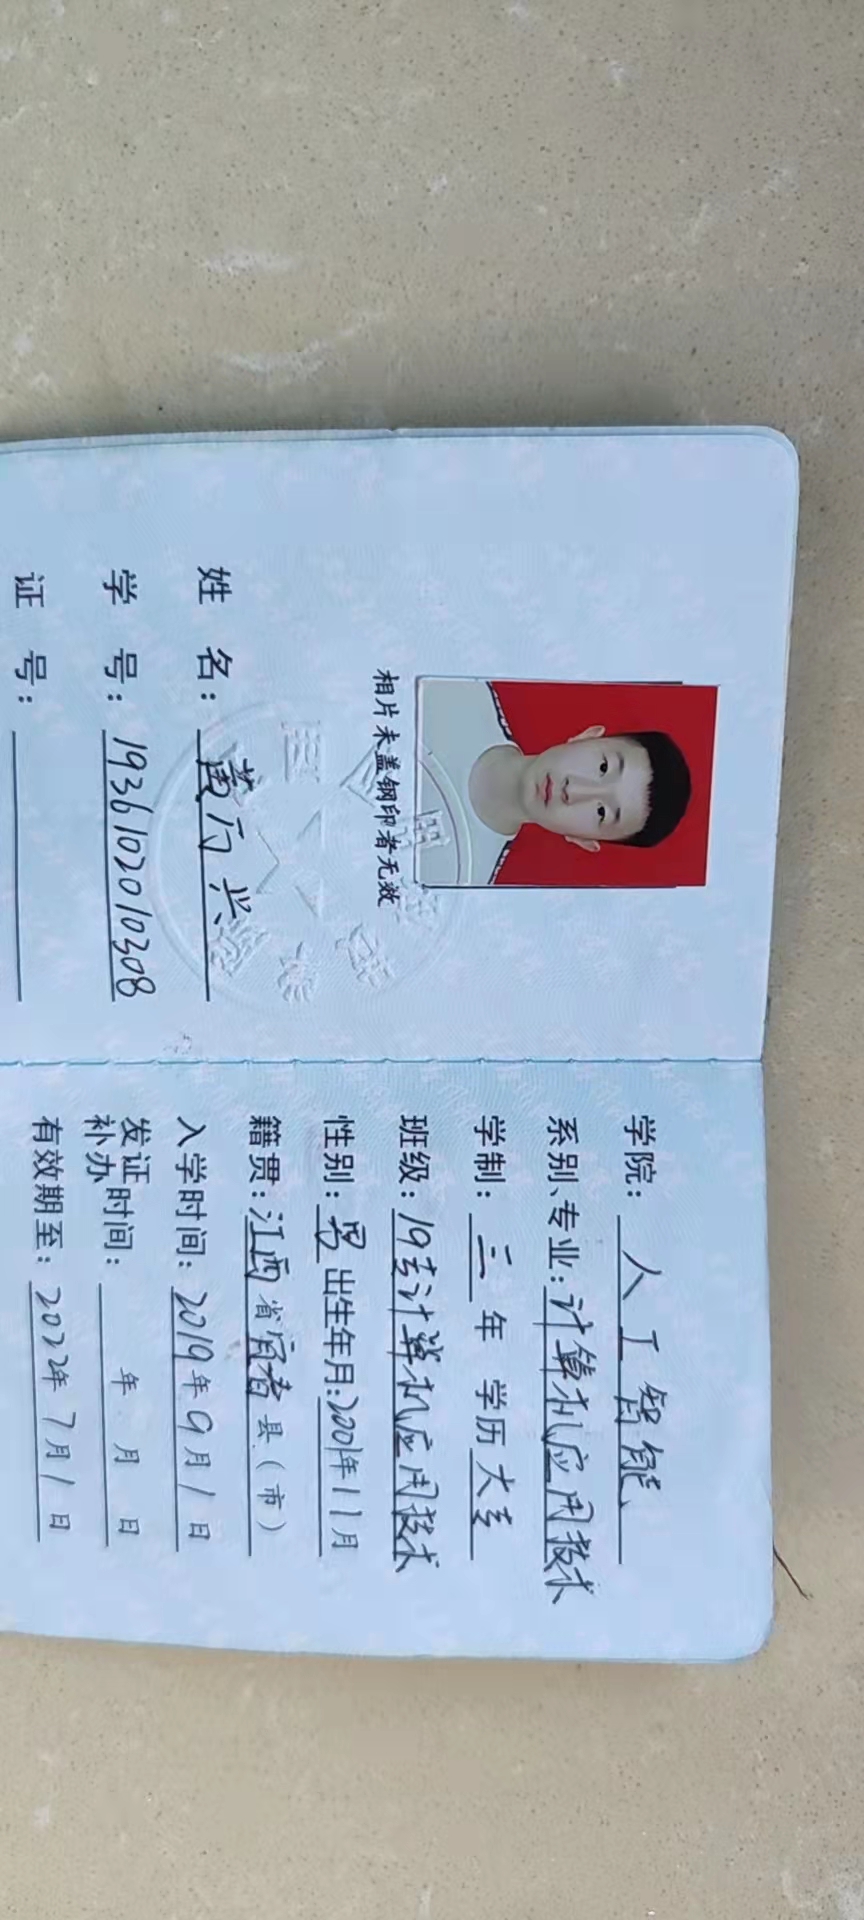 相片未盖钢印者无效
姓 名：黄历兴
学 号：1936102010308
证 号：
学院：人工智能
系别、专业：计算机应用技术
学制：三年 学历大专
班级：19专计算机应用技术
性别：男 出生年月：2001年11月
籍贯：江西省宜春县（市）
入学时间：2019年9月1日
发证
补办时间： 年 月 日
有效期至：2022年7月1日